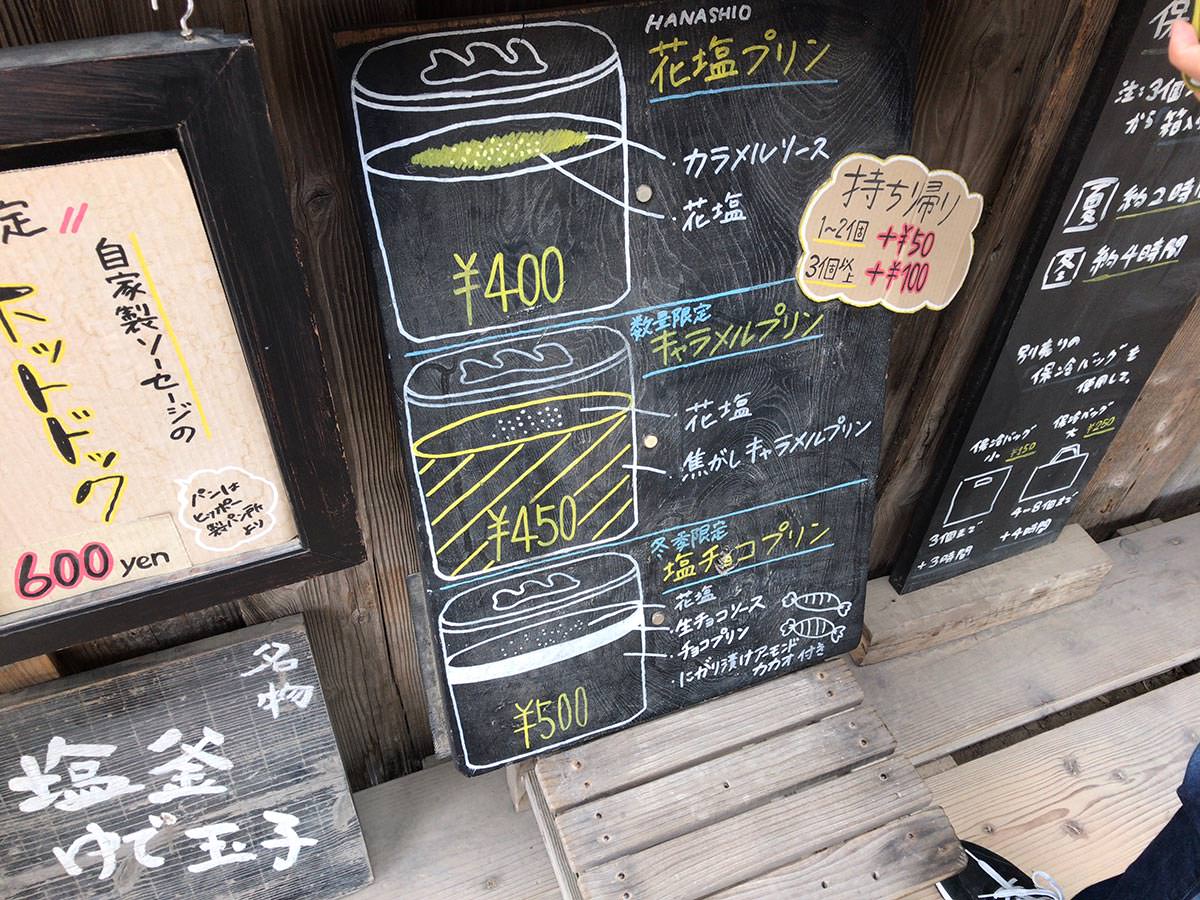 定
自家製ソーセージの
ホットドック
パンは
ヒッポー
製パン所
より
600 yen
名物
塩釜
ゆで玉子
HANASHIO
花塩プリン
・カラメルソース
・花塩
¥400
持ち帰り
1~2個 +¥50
3個以上 +¥100
数量限定
キャラメルプリン
・花塩
・焦がしキャラメルプリン
¥450
冬季限定
塩チョコプリン
・花塩
・生チョコソース
・チョコプリン
・にがり漬けアーモンド
カカオ付き
¥500
保
注:3個
から箱入
夏 約2時
冬 約4時間
別売りの
保冷バッグを
使用して。
保冷バッグ
小 ¥150
3個まで
+3時間
保冷バッグ
大 ¥250
4-8個まで
+4時間